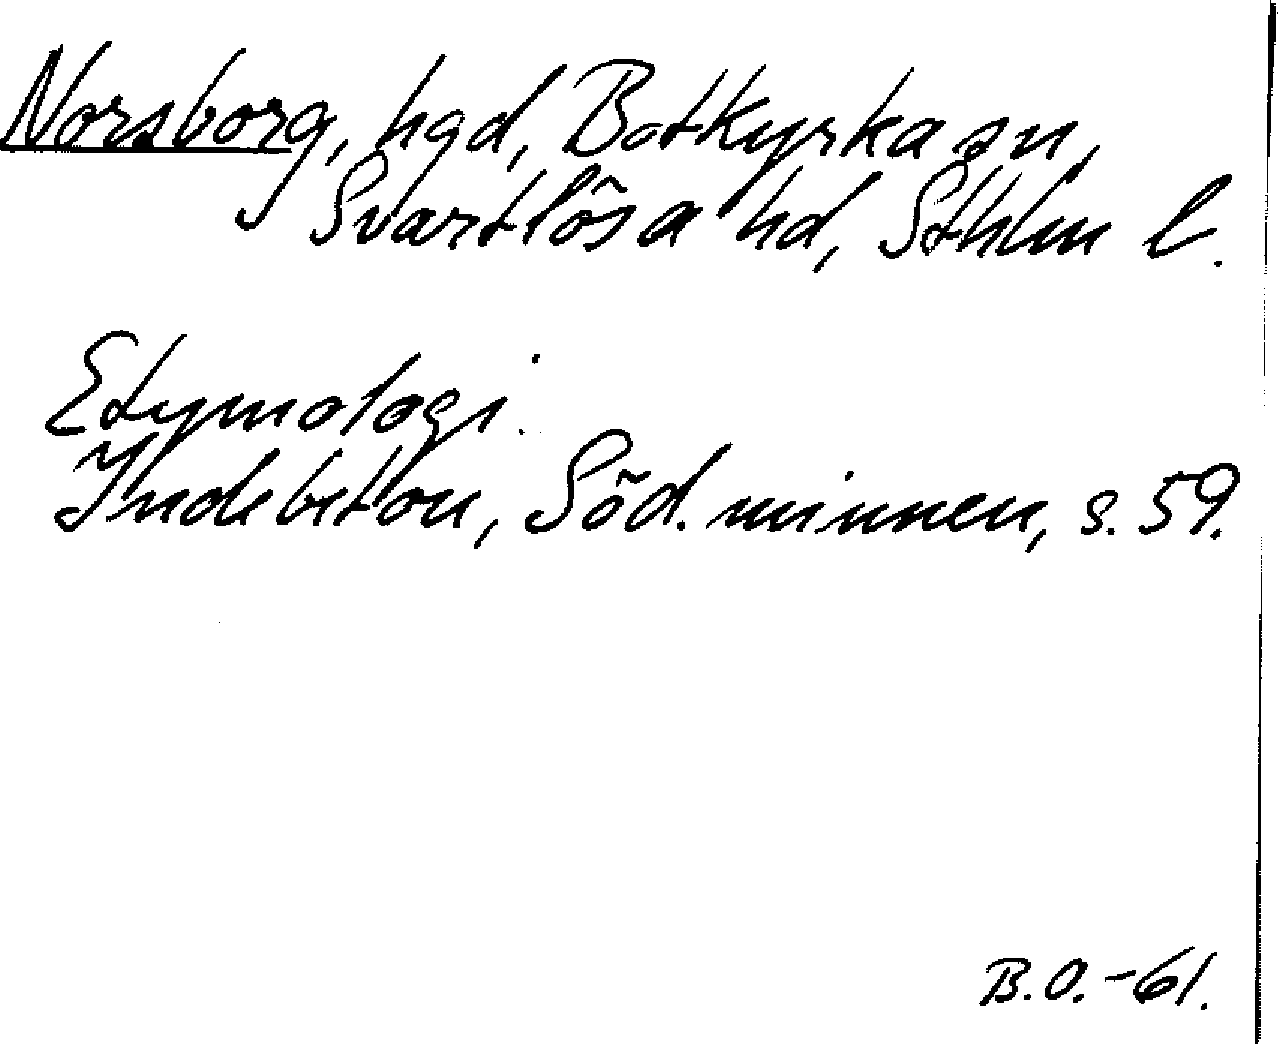 Norsborg, hgd, Botkyrka sn,
Svartlösa hd, Sthlm l.
Etymologi.
Indebetou, Söd. minnen, s. 59.
B.O.-61.